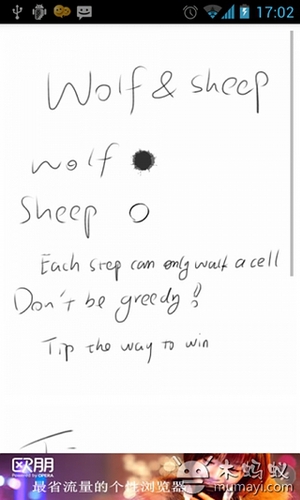 17:02
Wolf & sheep
wolf
Sheep
Each step can only walk a cell
Don't be greedy!
Tip the way to win
欧朋
Powered by OPERA
最省流量的个性浏览器
木蚂蚁
mumayi.com